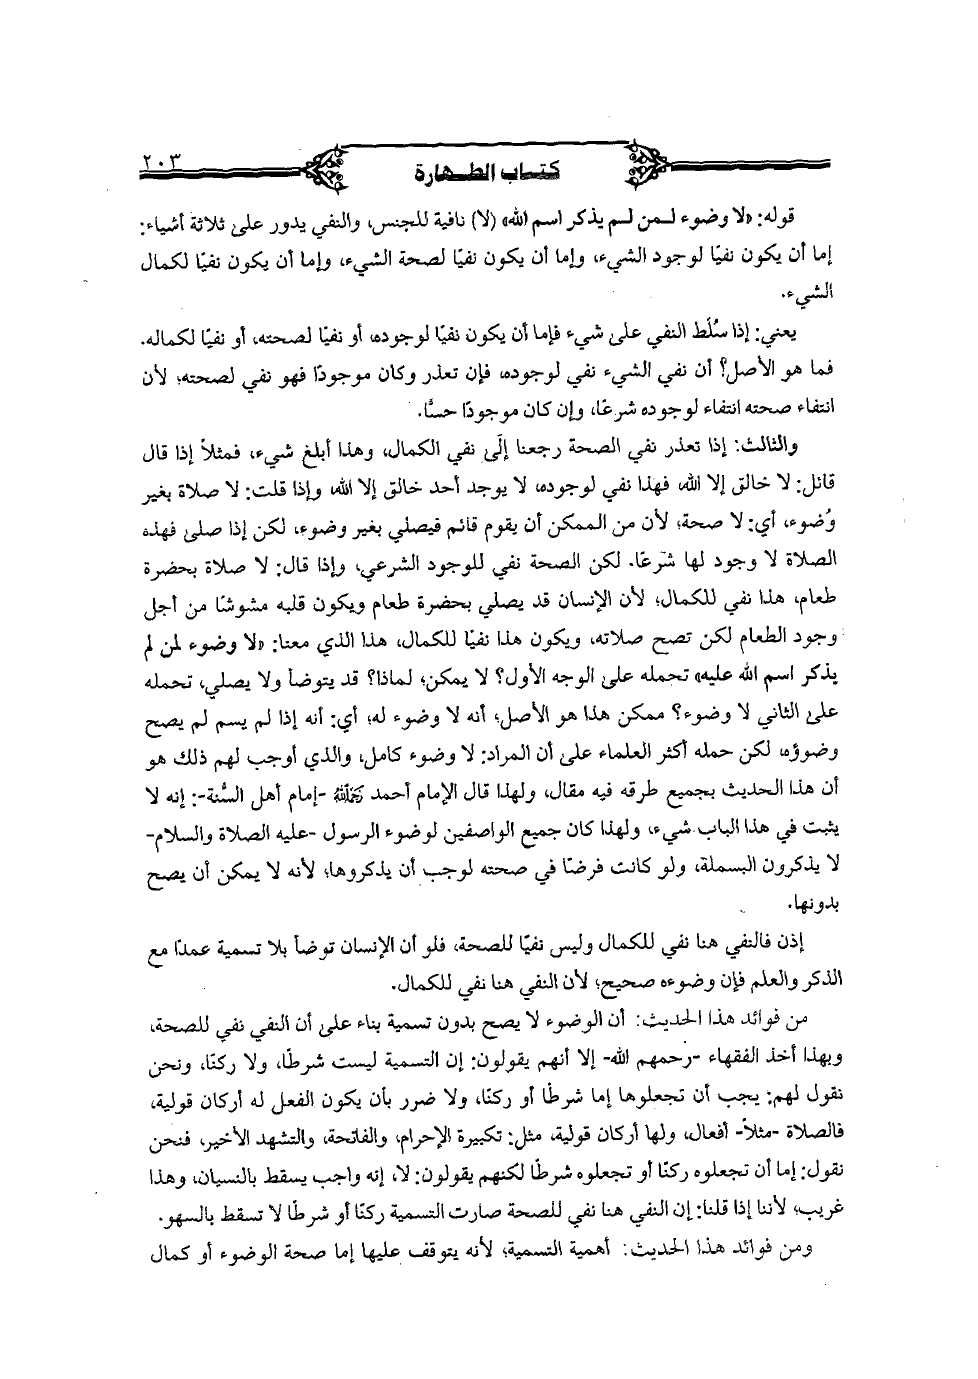 ٢٠٣
كتاب الطهارة
قوله: «لا وضوء لـمن لـم يذكر اسم الله» (لا) نافية للجنس، والنفي يدور على ثلاثة أشياء:
إما أن يكون نفيًا لوجود الشيء، وإما أن يكون نفيًا لصحة الشيء، وإما أن يكون نفيًا لكمال
الشيء.
يعني: إذا سُلِّط النفي على شيء فإما أن يكون نفيًا لوجوده، أو نفيًا لصحته، أو نفيًا لكماله.
فما هو الأصل؟ أن نفي الشيء نفي لوجوده، فإن تعذر وكان موجودًا فهو نفي لصحته؛ لأن
انتفاء صحته انتفاء لوجوده شرعًا، وإن كان موجودًا حسًّا.
والثالث: إذا تعذر نفي الصحة رجعنا إلَى نفي الكمال، وهذا أبلغ شيء، فمثلاً إذا قال
قائل: لا خالق إلا الله، فهذا نفي لوجوده، لا يوجد أحد خالق إلا الله، وإذا قلت: لا صلاة بغير
وُضوء، أي: لا صحة؛ لأن من الممكن أن يقوم قائم فيصلي بغير وضوء، لكن إذا صلى فهذه
الصلاة لا وجود لها شَرعًا. لكن الصحة نفي للوجود الشرعي، وإذا قال: لا صلاة بحضرة
طعام، هذا نفي للكمال؛ لأن الإنسان قد يصلي بحضرة طعام ويكون قلبه مشوشًا من أجل
وجود الطعام لكن تصح صلاته، ويكون هذا نفيًا للكمال، هذا الذي معنا: «لا وضوء لمن لم
يذكر اسم الله عليه» تحمله على الوجه الأول؟ لا يمكن؛ لماذا؟ قد يتوضأ ولا يصلي، تحمله
على الثاني لا وضوء؟ ممكن هذا هو الأصل؛ أنه لا وضوء له؛ أي: أنه إذا لم يسم لم يصح
وضوؤه، لكن حمله أكثر العلماء على أن المراد: لا وضوء كامل، والذي أوجب لهم ذلك هو
أن هذا الحديث بجميع طرقه فيه مقال، ولهذا قال الإمام أحمد رحمه الله -إمام أهل السُّنة-: إنه لا
يثبت في هذا الباب شيء، ولهذا كان جميع الواصفين لوضوء الرسول -عليه الصلاة والسلام-
لا يذكرون البسملة، ولو كانت فرضًا في صحته لوجب أن يذكروها؛ لأنه لا يمكن أن يصح
بدونها.
إذن فالنفي هنا نفي للكمال وليس نفيًا للصحة، فلو أن الإنسان توضأ بلا تسمية عمدًا مع
الذكر والعلم فإن وضوءه صحيح؛ لأن النفي هنا نفي للكمال.
من فوائد هذا الحديث: أن الوضوء لا يصح بدون تسمية بناء على أن النفي نفي للصحة،
وبهذا أخذ الفقهاء -رحمهم الله- إلا أنهم يقولون: إن التسمية ليست شرطًا، ولا ركنًا، ونحن
نقول لهم: يجب أن تجعلوها إما شرطًا أو ركنًا، ولا ضرر بأن يكون الفعل له أركان قولية،
فالصلاة -مثلاً- أفعال، ولها أركان قولية، مثل: تكبيرة الإحرام، والفاتحة، والتشهد الأخير، فنحن
نقول: إما أن تجعلوه ركنًا أو تجعلوه شرطًا لكنهم يقولون: لا، إنه واجب يسقط بالنسيان، وهذا
غريب؛ لأننا إذا قلنا: إن النفي هنا نفي للصحة صارت التسمية ركنًا أو شرطًا لا تسقط بالسهو.
ومن فوائد هذا الحديث: أهمية التسمية؛ لأنه يتوقف عليها إما صحة الوضوء أو كمال